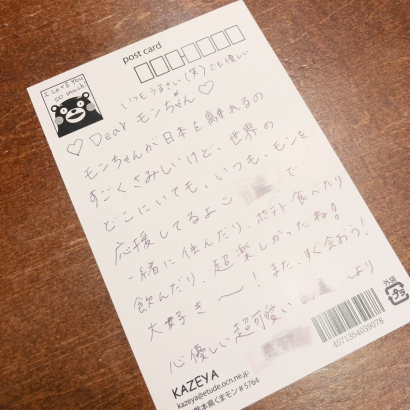 I LOVE YOU
so much
post card
いつもうるさい(笑)でも優しい
♡ Dear モンちゃん ♡
モンちゃんが日本を離れるの
すごくさみしいけど、世界の
どこにいても、いつも、モンを
応援してるよ
で
一緒に住んだり、ポテト食べたり
飲んだり、超楽しかったね!
大好き〜!また、すぐ会おう!
心優しい超可愛い
より
外袋
プラ
4571354039078
KAZEYA
kazeya@etude.ocn.ne.jp
熊本県くまモン#5764